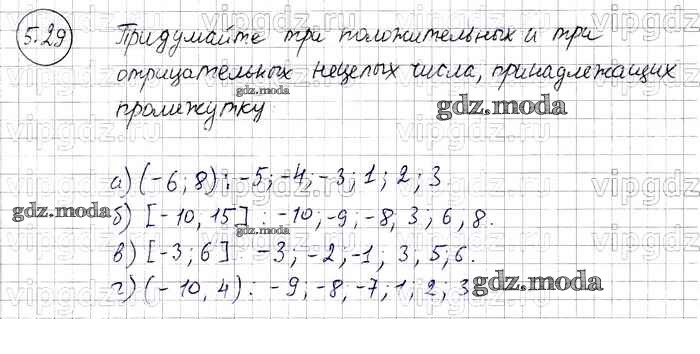 5.29
Придумайте три положительных и три
отрицательных нецелых числа, принадлежащих
gdz.moda
промежутку
gdz.moda
а) (-6; 8) : -5; -4; -3; 1; 2; 3
gdz.moda
б) [-10, 15] : -10; -9; -8, 3; 6, 8.
gdz.moda
в) [-3; 6] : -3; -2; -1, 3, 5; 6.
г) (-10, 4) : -9; -8, -7; 1, 2; 3
gdz.moda
vipgdz.ru